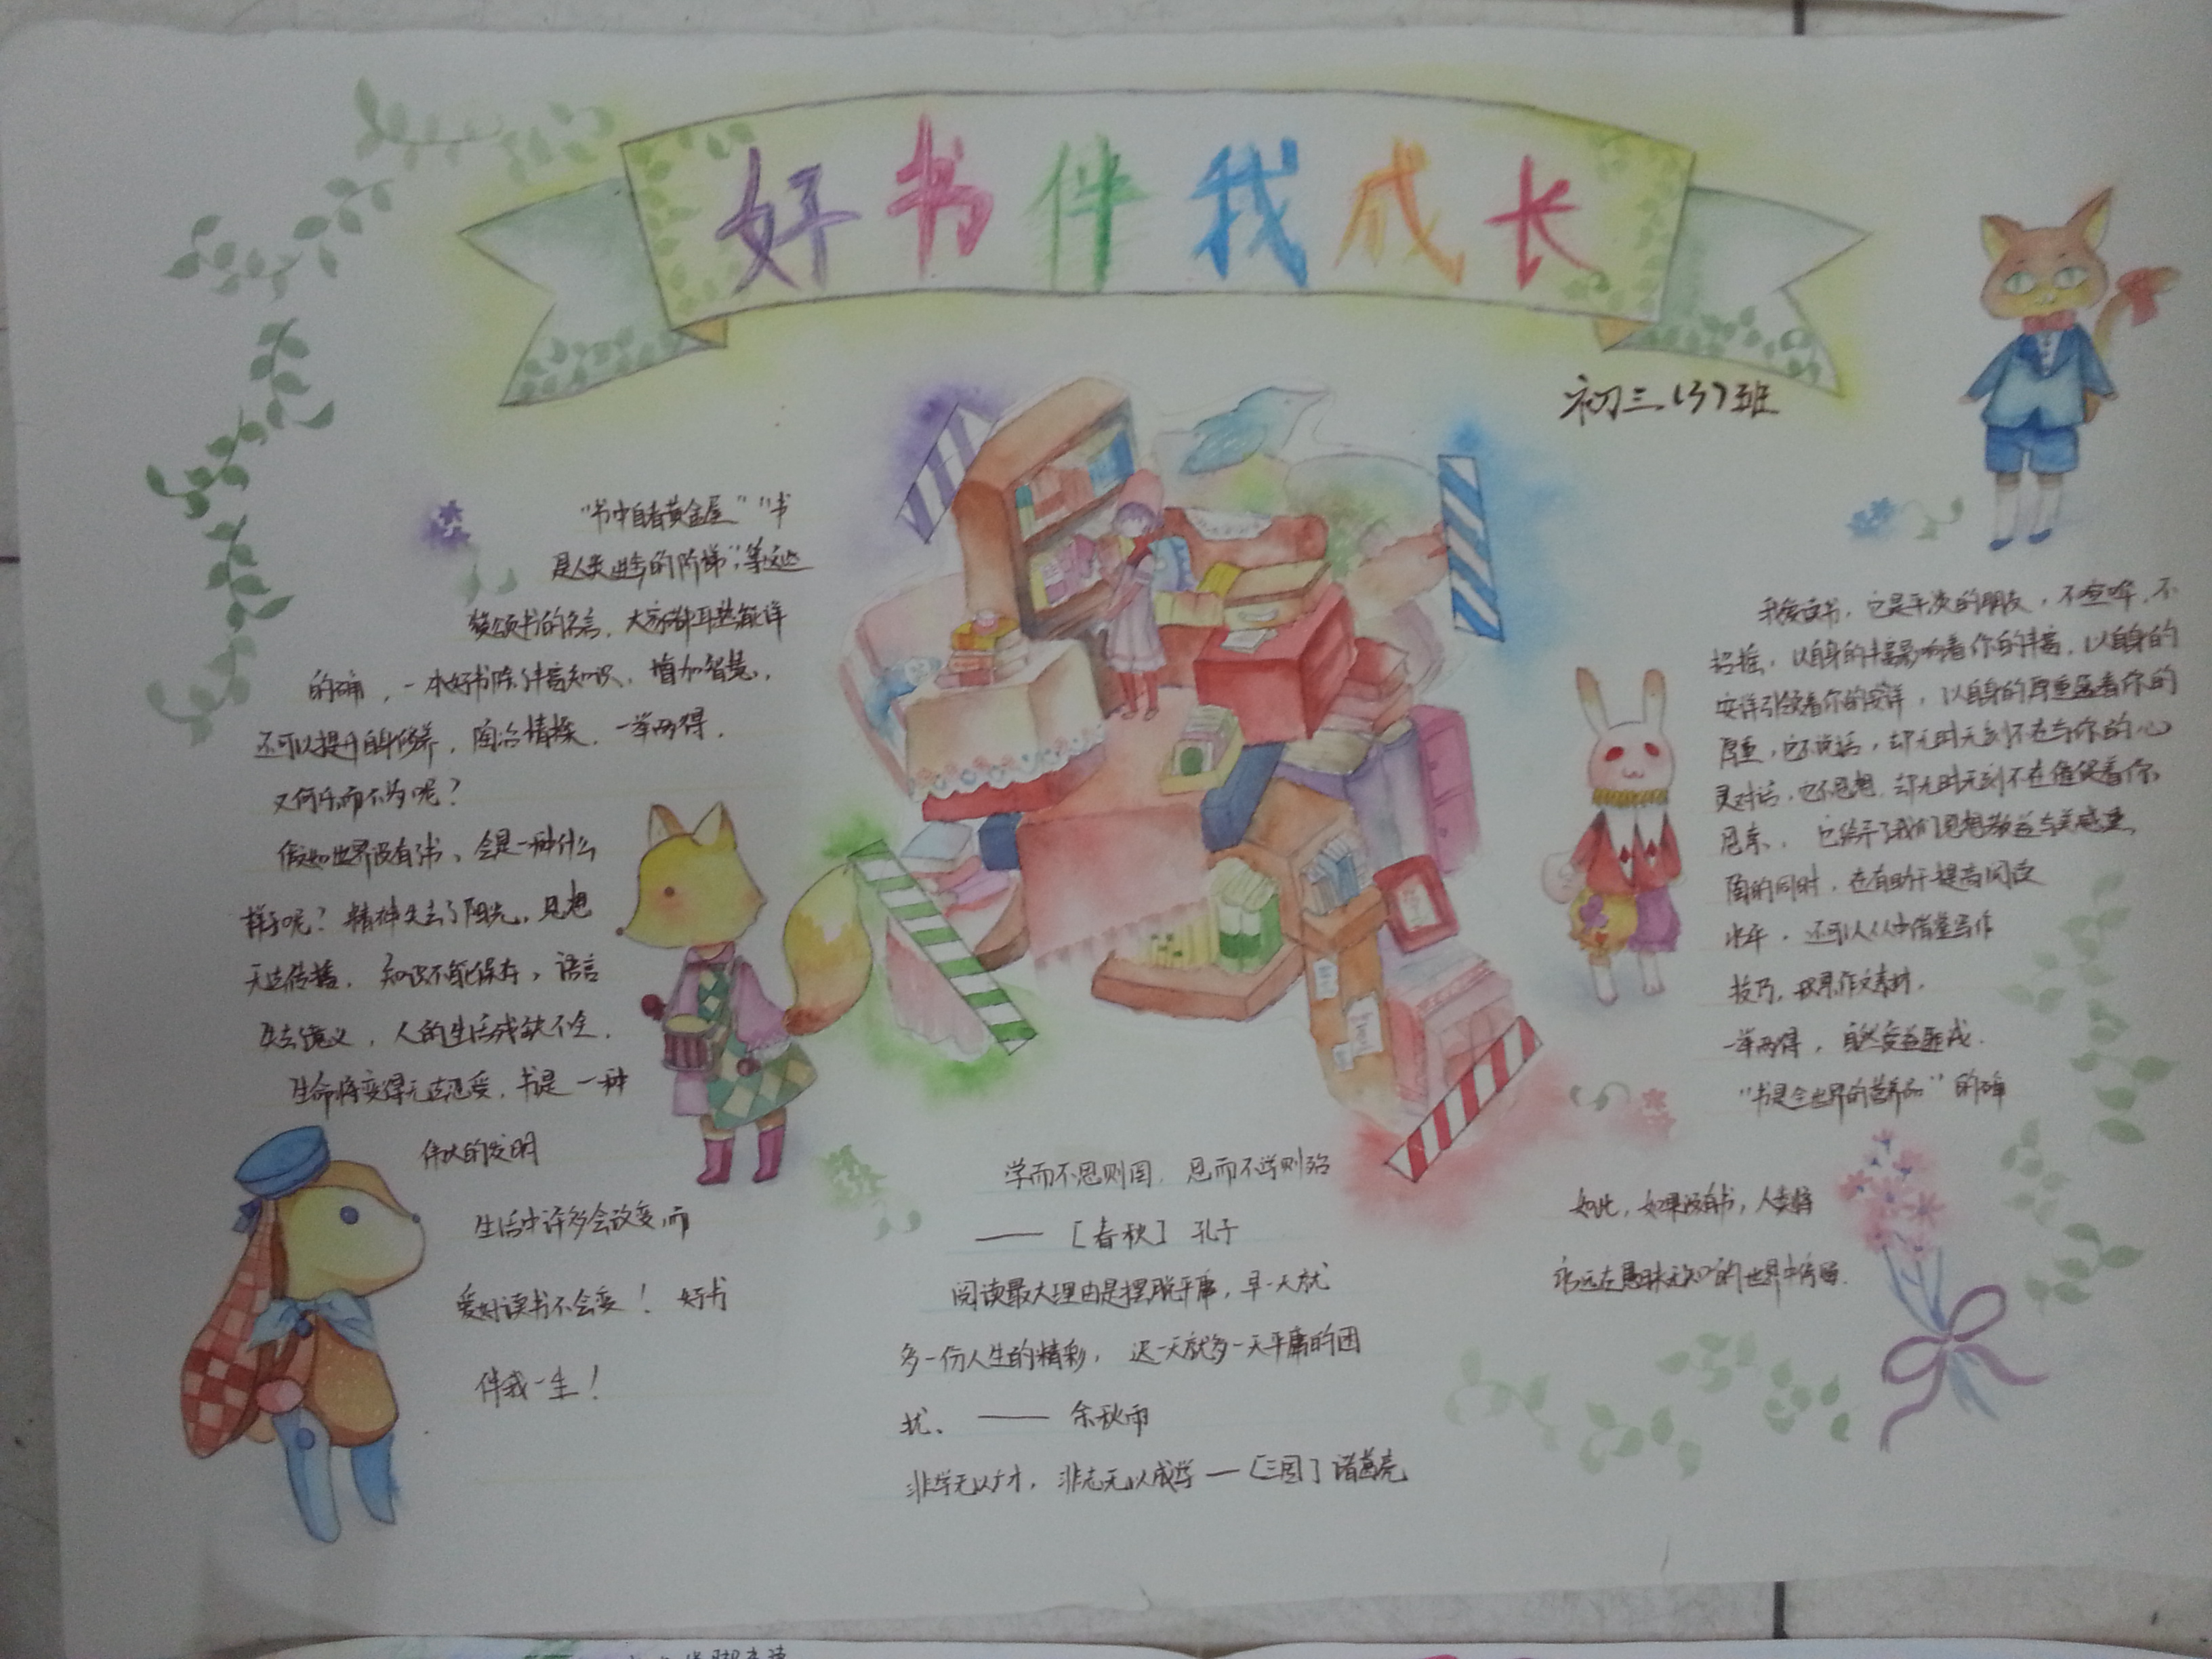 好书伴我成长
初三(3)班
"书中自有黄金屋""书
是人类进步的阶梯"等这些
赞颂书的名言，大家都耳熟能详
的确，一本好书除了丰富知识、增加智慧，
还可以提升自身修养，陶冶情操，一举两得，
又何乐而不为呢？
假如世界没有了书，会是一种什么
样子呢？精神失去了阳光，思想
无法传播，知识不能保存，语言
失去意义，人的生活残缺不全，
生命将变得无法忍受，书是一种
伟大的发明
生活中许多会改变，而
爱好读书不会变！好书
伴我一生！
学而不思则罔，思而不学则殆
——［春秋］孔子
阅读最大理由是摆脱平庸，早一天就
多一份人生的精彩，迟一天就多一天平庸的困
扰。——余秋雨
非学无以广才，非志无以成学—［三国］诸葛亮
我爱读书，它是平淡的朋友，不喧哗，不
招摇，以自身的丰富影响着你的丰富，以自身的
安详引领着你的安详，以自身的厚重 着你的
厚重，它不说话，却无时无刻不在与你的心
灵对话，也不思想，却无时无刻不在催促着你
思索。它给予了我们思想 与美感 
陶的同时，在有助于提高阅读
水平，还可以从中借鉴写作
技巧，获 作文素材，
一举两得，自然受益匪浅。
"书是全世界的营养品"的确
如此，如果没有书，人类将
永远在愚昧无知的世界中